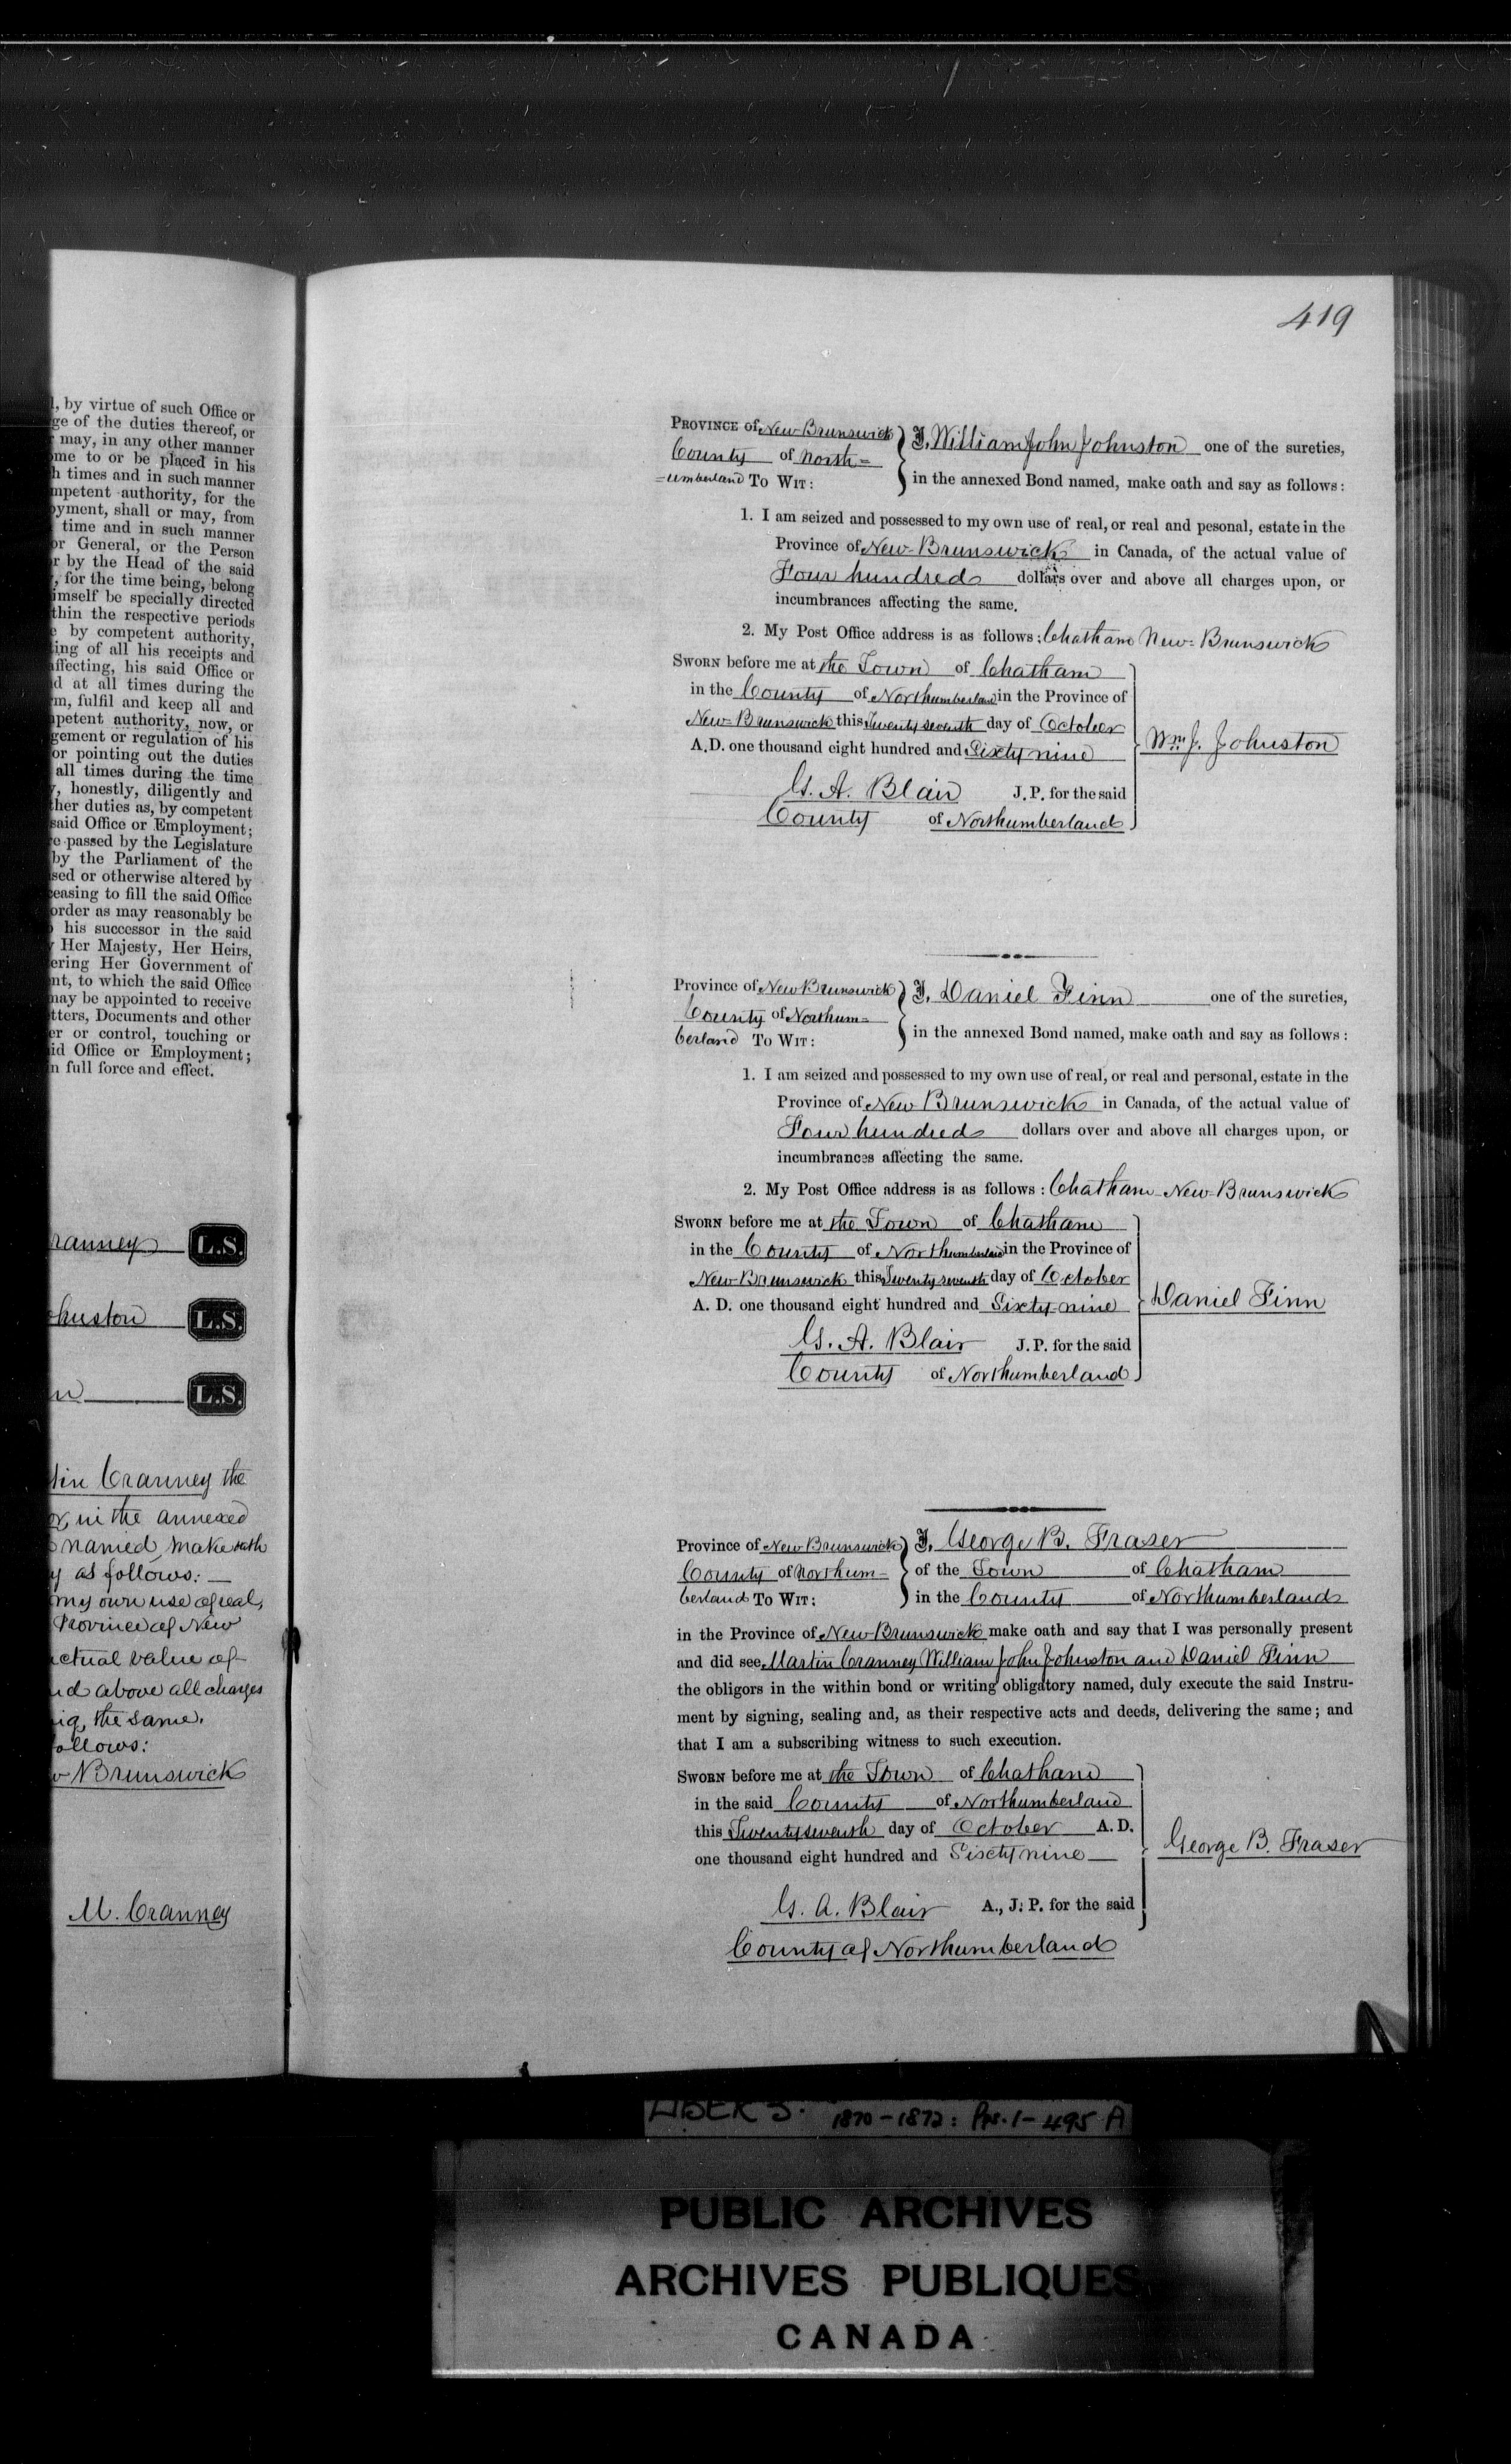 l, by virtue of such Office or
ge of the duties thereof, or
may, in any other manner
ome to or be placed in his
h times and in such manner
mpetent authority, for the
oyment, shall or may, from
time and in such manner
or General, or the Person
r by the Head of the said
, for the time being, belong
imself be specially directed
thin the respective periods
e by competent authority,
ing of all his receipts and
affecting, his said Office or
d at all times during the
m, fulfil and keep all and
mpetent authority, now, or
gement or regulation of his
or pointing out the duties
all times during the time
y, honestly, diligently and
ther duties as, by competent
said Office or Employment;
e passed by the Legislature
by the Parliament of the
sed or otherwise altered by
ceasing to fill the said Office
order as may reasonably be
his successor in the said
y Her Majesty, Her Heirs,
ering Her Government of
nt, to which the said Office
may be appointed to receive
tters, Documents and other
er or control, touching or
id Office or Employment;
n full force and effect.
ranney L.S.
ohnston L.S.
n L.S.
tin Cranney the
or, in the annexed
named, make oath
y as follows:—
my own use of real,
Province of New
actual value of
nd above all charges
ing, the same.
follows:
w Brunswick
M. Cranney
419
PROVINCE of New-Brunswick } I, William John Johnston one of the sureties,
County of North=
=umberland TO WIT: } in the annexed Bond named, make oath and say as follows:
1. I am seized and possessed to my own use of real, or real and pesonal, estate in the
Province of New-Brunswick in Canada, of the actual value of
Four hundred dollars over and above all charges upon, or
incumbrances affecting the same.
2. My Post Office address is as follows: Chatham New-Brunswick
SWORN before me at the Town of Chatham
in the County of Northumberland in the Province of
New-Brunswick this Twenty seventh day of October
A.D. one thousand eight hundred and Sixty nine } Wm. J. Johnston
G. A. Blair J. P. for the said
County of Northumberland
Province of New Brunswick } I, Daniel Finn one of the sureties,
County of Northum=
berland TO WIT: } in the annexed Bond named, make oath and say as follows:
1. I am seized and possessed to my own use of real, or real and personal, estate in the
Province of New Brunswick in Canada, of the actual value of
Four hundred dollars over and above all charges upon, or
incumbrances affecting the same.
2. My Post Office address is as follows: Chatham-New-Brunswick
SWORN before me at the Town of Chatham
in the County of Northumberland in the Province of
New-Brunswick this Twenty seventh day of October
A. D. one thousand eight hundred and Sixty-nine } Daniel Finn
G. A. Blair J. P. for the said
County of Northumberland
Province of New Brunswick } I, George B. Fraser
County of Northum= of the Town of Chatham
berland TO WIT: } in the County of Northumberland
in the Province of New-Brunswick make oath and say that I was personally present
and did see Martin Cranney William John Johnston and Daniel Finn
the obligors in the within bond or writing obligatory named, duly execute the said Instru-
ment by signing, sealing and, as their respective acts and deeds, delivering the same; and
that I am a subscribing witness to such execution.
SWORN before me at the Town of Chatham
in the said County of Northumberland
this Twenty seventh day of October A. D.
one thousand eight hundred and Sixty nine— } George B. Fraser
G. A. Blair A., J. P. for the said
County of Northumberland
LIBER 3. 1870-1872: Pps. 1-495 A
PUBLIC ARCHIVES
ARCHIVES PUBLIQUES
CANADA